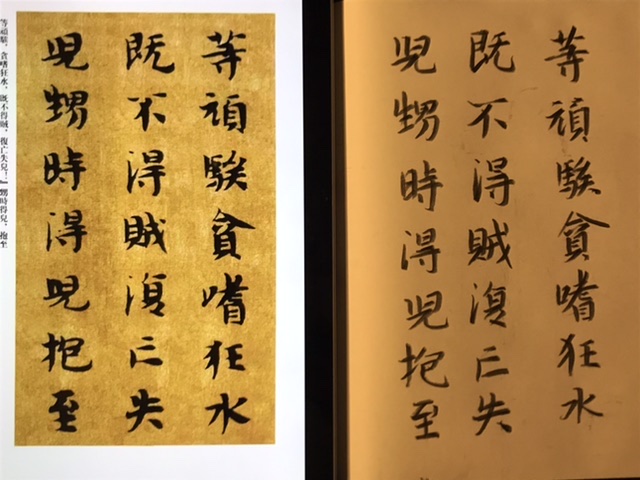 等頑騃，貪嗜狂水，既不得賊，復亡失兒！』甥時得兒，抱至
等頑騃貪嗜狂水
既不得賊復亡失
兒甥時得兒抱至
等頑騃貪嗜狂水
既不得賊復亡失
兒甥時得兒抱至